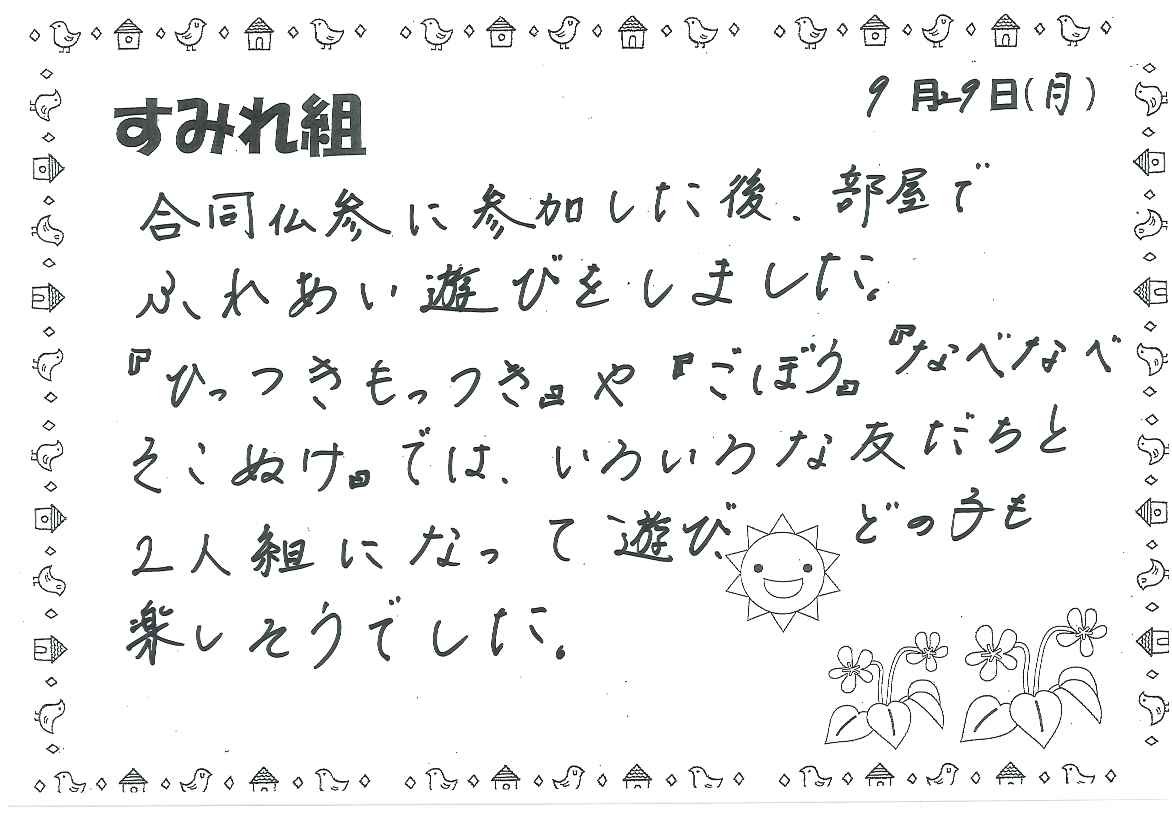 9月29日(月)
すみれ組
合同仏参に参加した後、部屋で
ふれあい遊びをしました。
『ひっつきもっつき』や『ごぼう』『なべなべ
そこぬけ』では、いろいろな友だちと
2人組になって遊び、どの子も
楽しそうでした。